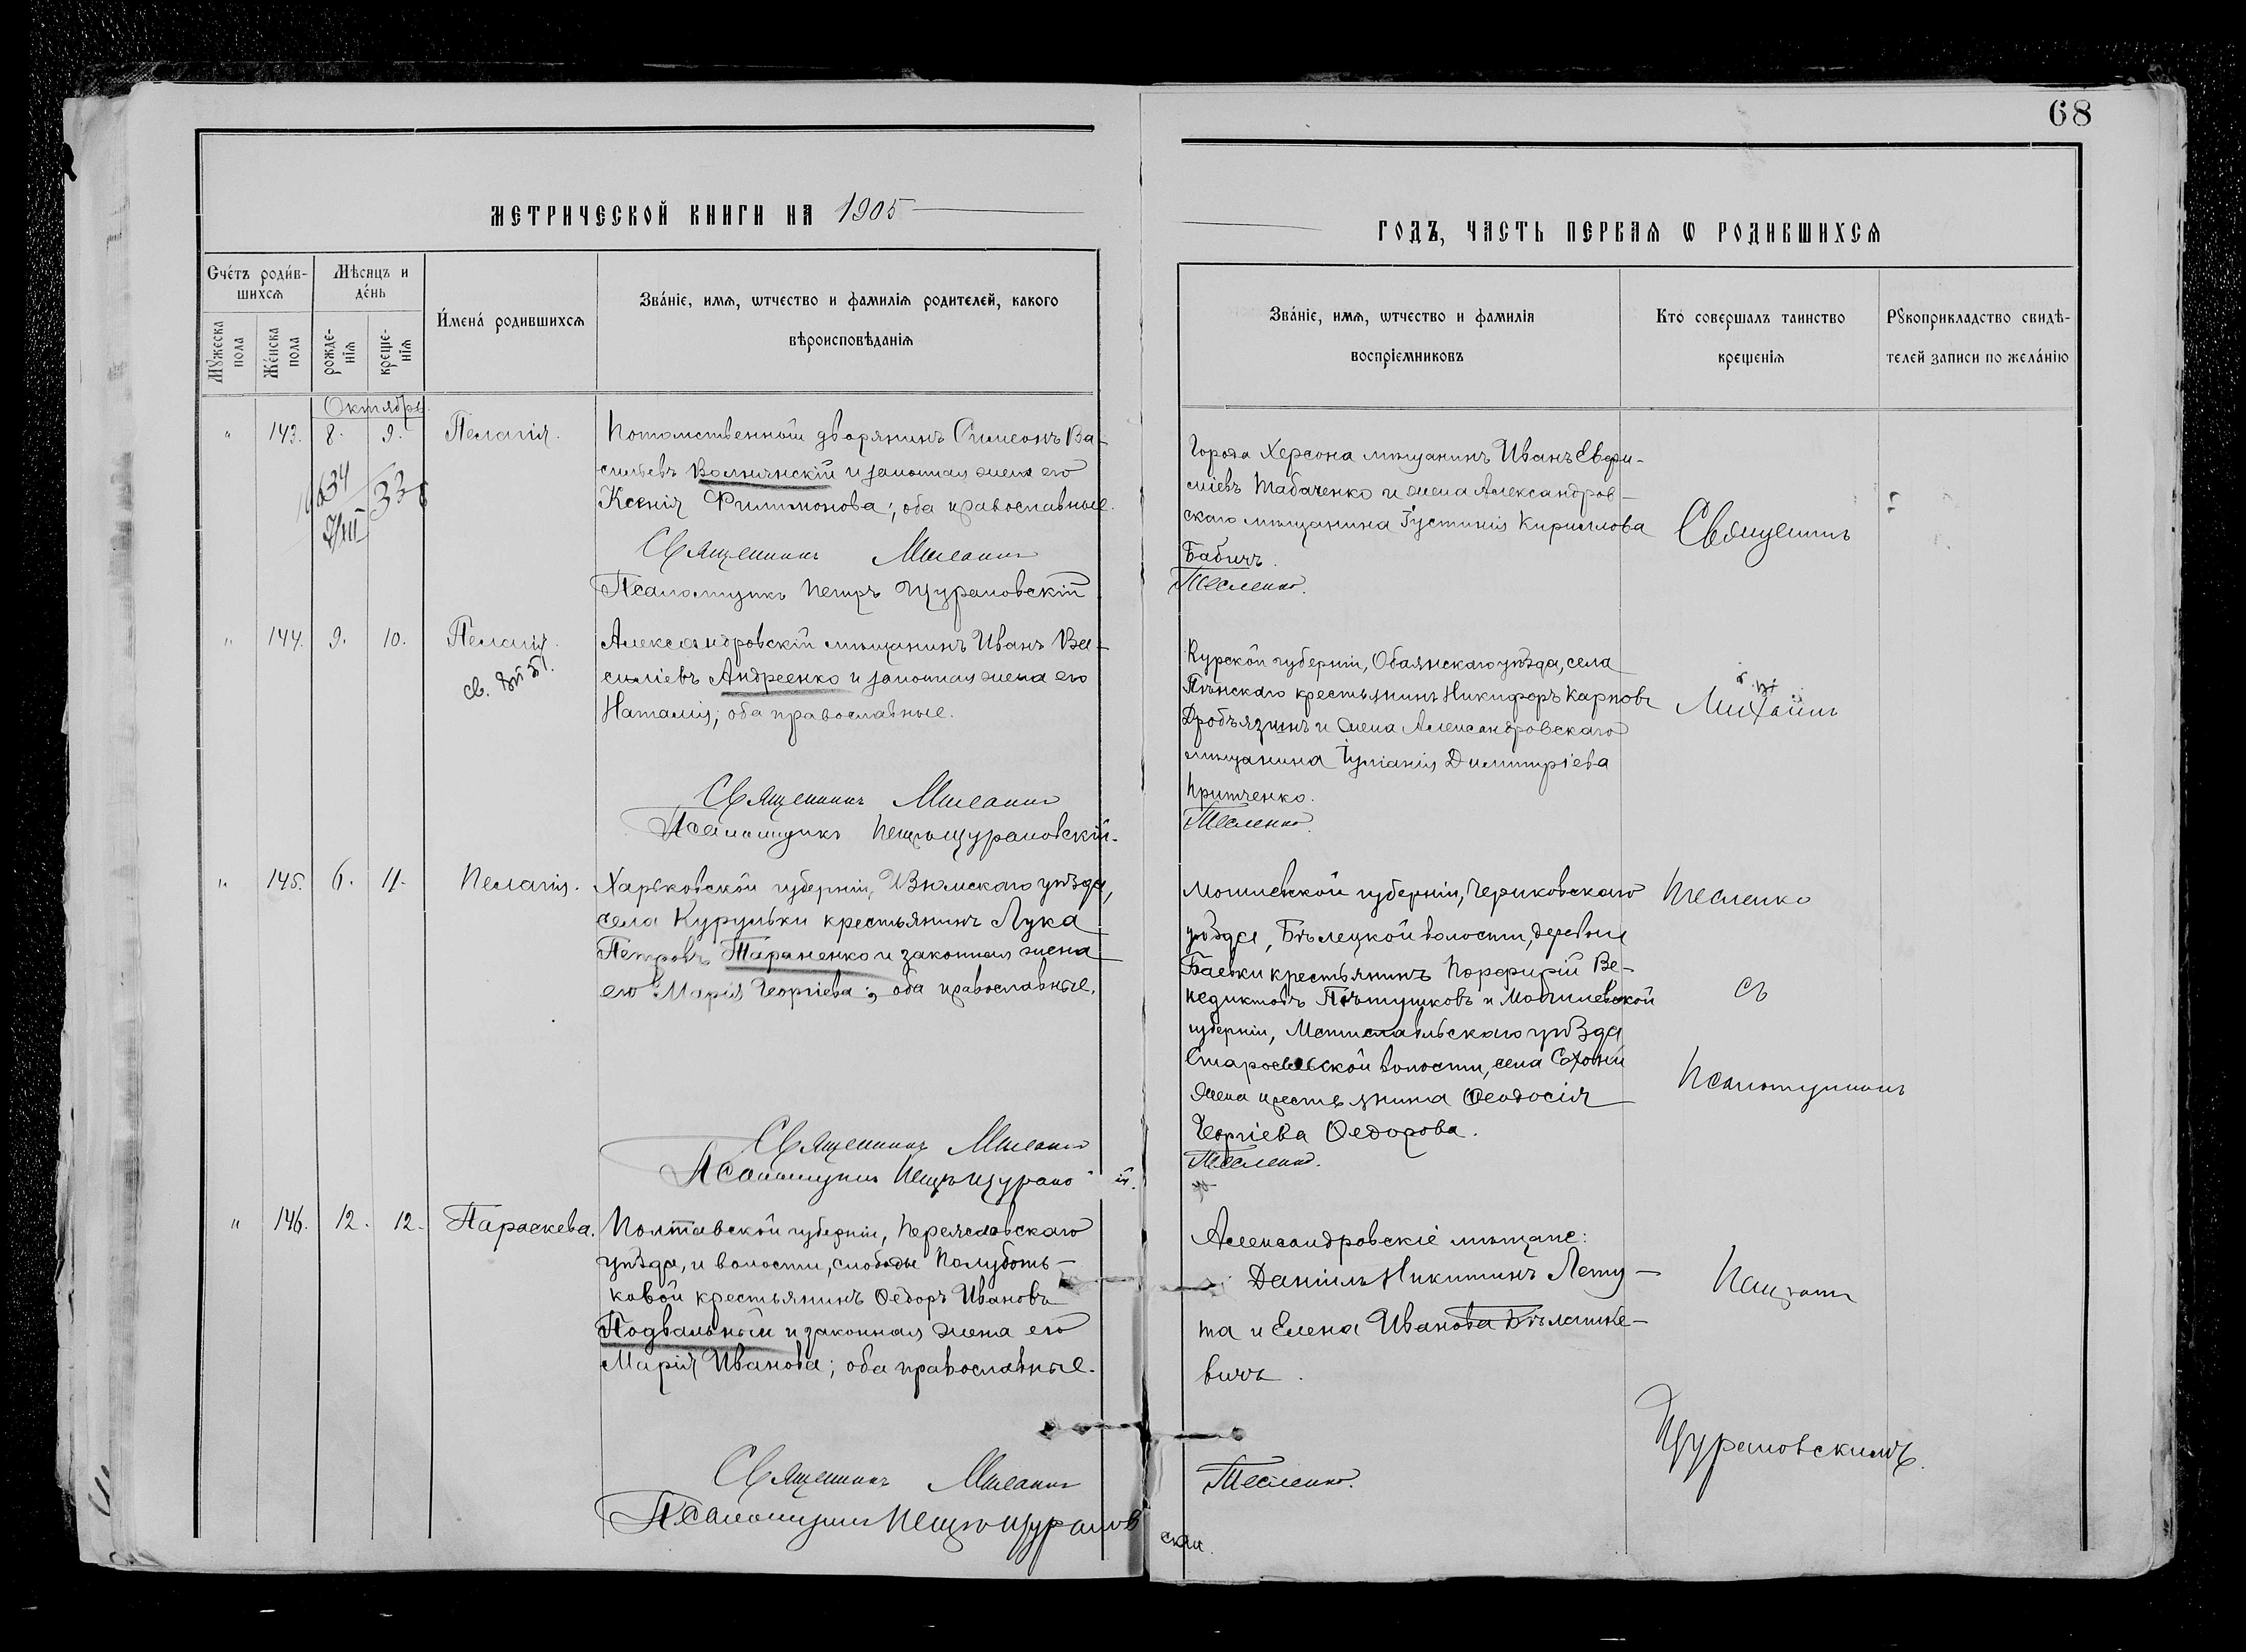 68
МЕТРИЧЕСКОЙ КНИГИ НА 1905
ГОДЪ, ЧАСТЬ ПЕРВАЯ Ѡ РОДИВШИХСЯ
Счéтъ роди́в-
шихсѧ
Мѣсяцъ и
де́нь
И́мена́ родившихсѧ
Зва́нїе, имѧ, ѡтчество и фамилїѧ родителей, какого
вѣроисповѣданїѧ
Мꙋжеска
пола
Же́нска
пола
рожде-
нїѧ
креще-
нїѧ
Зва́нїе, имѧ, ѡтчество и фамилїѧ
воспрїемниковъ
Кто̀ совершалъ таинство
крещенїѧ
Рꙋкоприкладство свидѣ-
телей записи по жела́нїю
Октябрь
" 143. 8. 9. Пелагія.
Потомственный дворянинъ Симеонъ Ва-
сильевъ Волнянскій и законная жена его
Ксенія Филимонова; оба православные.
Священникъ
Псаломщикъ Петръ Щурановскій
Города Херсона мѣщанинъ Иванъ Евфи-
міевъ Табаченко и жена Александров-
скаго мѣщанина Іустинія Кириллова
Бабичъ.
Тесленко.
Священник
" 144. 9. 10. Пелагія.
Александровскій мѣщанинъ Иванъ Ва-
силіевъ Андреенко и законная жена его
Наталія; оба православные.
Священникъ
Псаломщикъ Петръ Щурановскій.
Курской губерніи, Обаянскаго уѣзда, села
Пѣнскаго крестьянинъ Никифоръ Карповъ
Дробъязинъ и жена Александровскаго
мѣщанина Іуліанія Димитріева
Притченко.
Тесленко.
Михаилъ
" 145. 6. 11. Пелагія.
Харьковской губерніи, Изюмскаго уѣзда,
села Курульки крестьянинъ Лука
Петровъ Тараненко и законная жена
его Марія Георгіева; оба православные.
Священникъ
Псаломщикъ Петръ
Могилевской губерніи, Чериковскаго
уѣзда, Бѣлецкой волости, деревни
Баевки крестьянинъ Порфирій Ве-
недиктовъ Пѣтушковъ и Могилевской
губерніи, Мстиславльскаго уѣзда
Старосельской волости, села
жена крестьянина Ѳеодосія
Георгіева Ѳедорова.
Тесленко.
Тесленко
съ
Псаломщикомъ
" 146. 12. 12. Параскева.
Полтавской губерніи, Переяславскаго
уѣзда, и волости, слободы Полуботь-
ковой крестьянинъ Ѳедоръ Ивановъ
Подвальный и законная жена его
Марія Иванова; оба православные.
Священникъ
Псаломщикъ Петръ Щурановскій.
Александровскіе мѣщане:
Даніилъ Никитинъ Лету-
та и Елена Иванова Бѣлашке-
вичъ.
Тесленко.
Петромъ
Щурановскимъ.